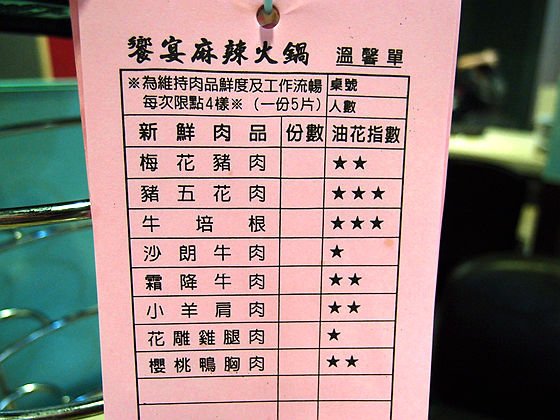 饗宴麻辣火鍋 溫馨單
※為維持肉品鮮度及工作流暢 桌號
每次限點4樣※(一份5片) 人數
新鮮肉品 份數 油花指數
梅花豬肉 ★★
豬五花肉 ★★★
牛培根 ★★★
沙朗牛肉 ★
霜降牛肉 ★★
小羊肩肉 ★★
花雕雞腿肉 ★
櫻桃鴨胸肉 ★★